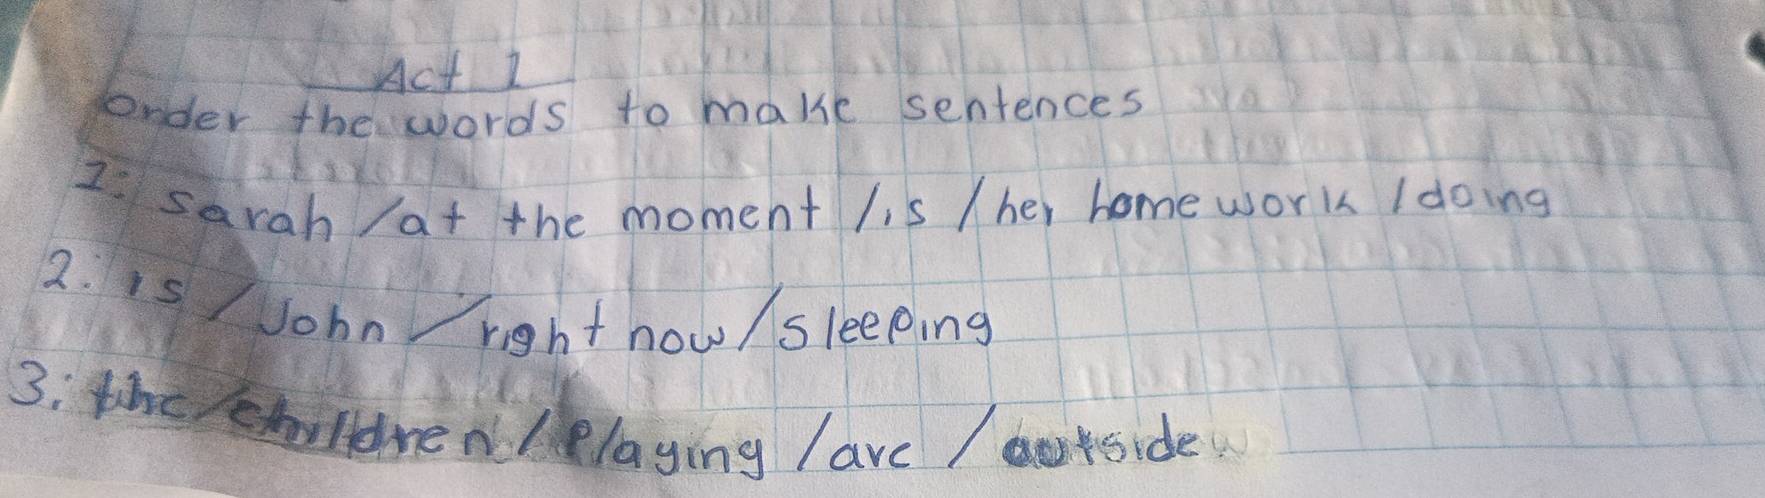 Act 1
order the words to make sentences
1: sarah / at the moment / is / her homework / doing
2. is / John / right now / sleeping
3: the / children / playing / are / outside